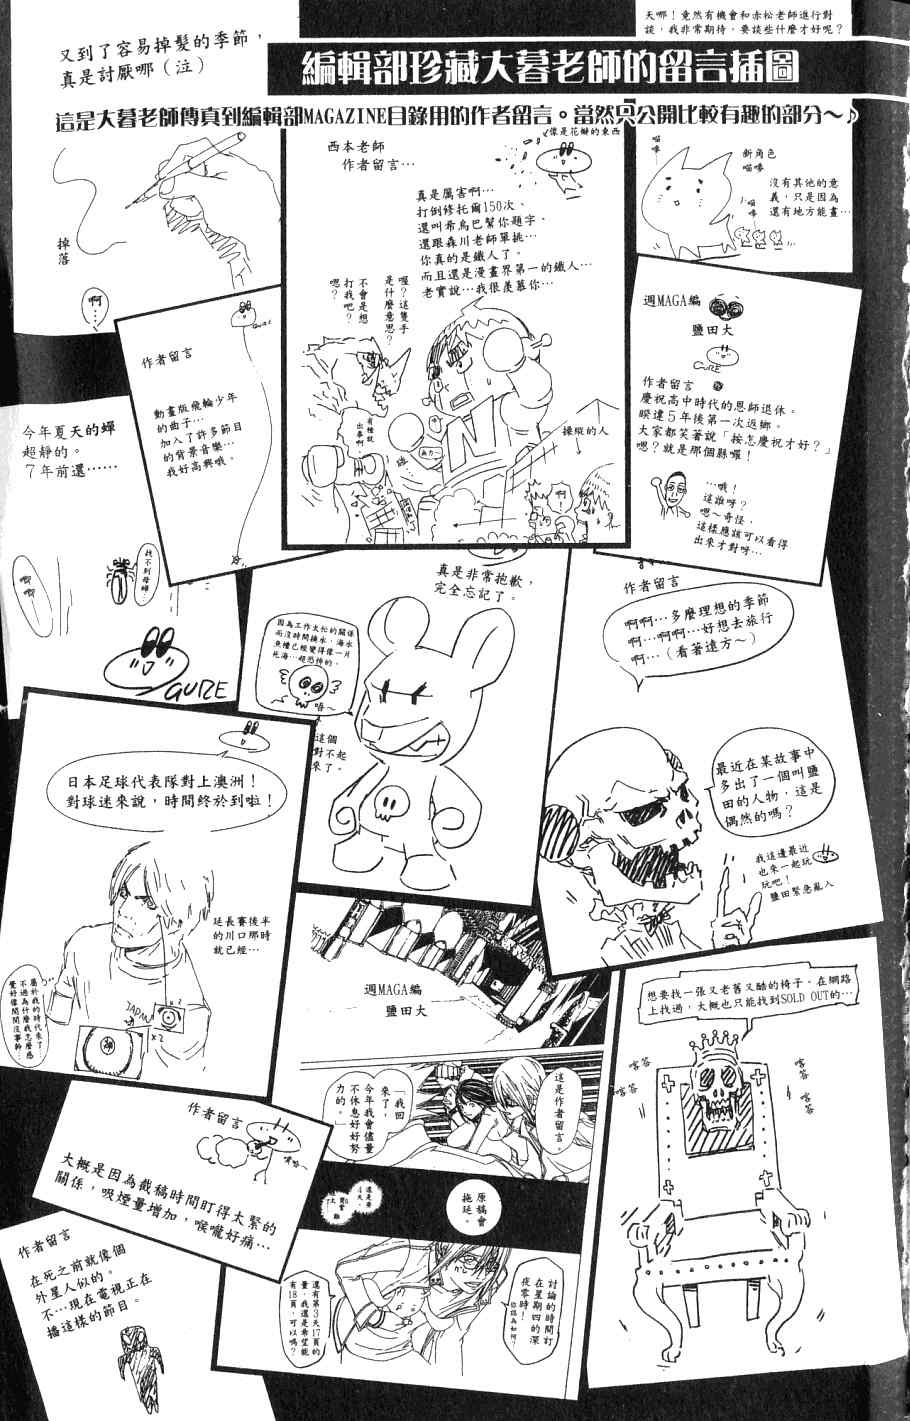 天哪！竟然有機會和赤松老師進行對
談，我非常期待，要談些什麼才好呢？
又到了容易掉髮的季節，
真是討厭哪（泣）
編輯部珍藏大暮老師的留言插圖
這是大暮老師傳真到編輯部MAGAZINE目錄用的作者留言。當然只公開比較有趣的部分～♪
掉落
啊…
西本老師
作者留言…
像是花瓣的東西
真是厲害啊…
打倒修托爾150次、
還叫希烏巴幫你題字、
還跟森川老師單挑…
你真的是鐵人了。
而且還是漫畫界第一的鐵人…
老實說…我很羨慕你…
喔？這隻手
是什麼意思？
不會是想
打我吧？
嗯？
操縱的人
啊！
喵嗶
新角色
喵嗶
沒有其他的意
義，只是因為
還有地方能畫…
喵嗶
週MAGA編
鹽田大
GURE
作者留言
慶祝高中時代的恩師退休。
睽違5年後第一次返鄉。
大家都笑著說「按怎慶祝才好？」
嗯？就是那個縣囉！
…哦！
這誰呀？
嗯～奇怪，
這樣應該可以看得
出來才對呀…
GURE
作者留言
動畫版飛輪少年
的曲子…
加入了許多節目
的背景音樂…
我好高興哦。
今年夏天的蟬
超靜的。
7年前還……
唧唧…
找不到母蟬…
GURE
真是非常抱歉，
完全忘記了。
因為工作太忙的關係
而沒時間換水，海水
魚槽已經變得像一片
死海…超恐怖的。
唔～
這個
對不起
來了。
作者留言
啊啊…多麼理想的季節
啊…啊啊…好想去旅行
啊…（看著遠方～）
最近在某故事中
多出了一個叫鹽
田的人物，這是
偶然的嗎？
我這邊最近
也來一起玩
玩吧！
鹽田緊急亂入
日本足球代表隊對上澳洲！
對球迷來說，時間終於到啦！
延長賽後半
的川口那時
就已經…
屬於我的時代來了
不過為什麼我怎麼感
覺好像閒閒沒事幹…
JAPAN
×2
×2
週MAGA編
鹽田大
這是作者留言。
「我回
來了」
今年我會儘量
不休息好好努
力的。
原稿會
拖延。
討論的時間訂
在星期四的深
夜零時！
你認為如何？
還有第3天17頁的
量，我還是希望能
有18頁，可以嗎？
想要找一張又老舊又酷的椅子。在網路
上找過，大概也只能找到SOLD OUT的…
喀答
喀答
喀答
喀答
作者留言
大概是因為截稿時間盯得太緊的
關係，吸煙量增加，喉嚨好痛…
作者留言
在死之前就像個
外星人似的。
不…現在電視正在
播這樣的節目。